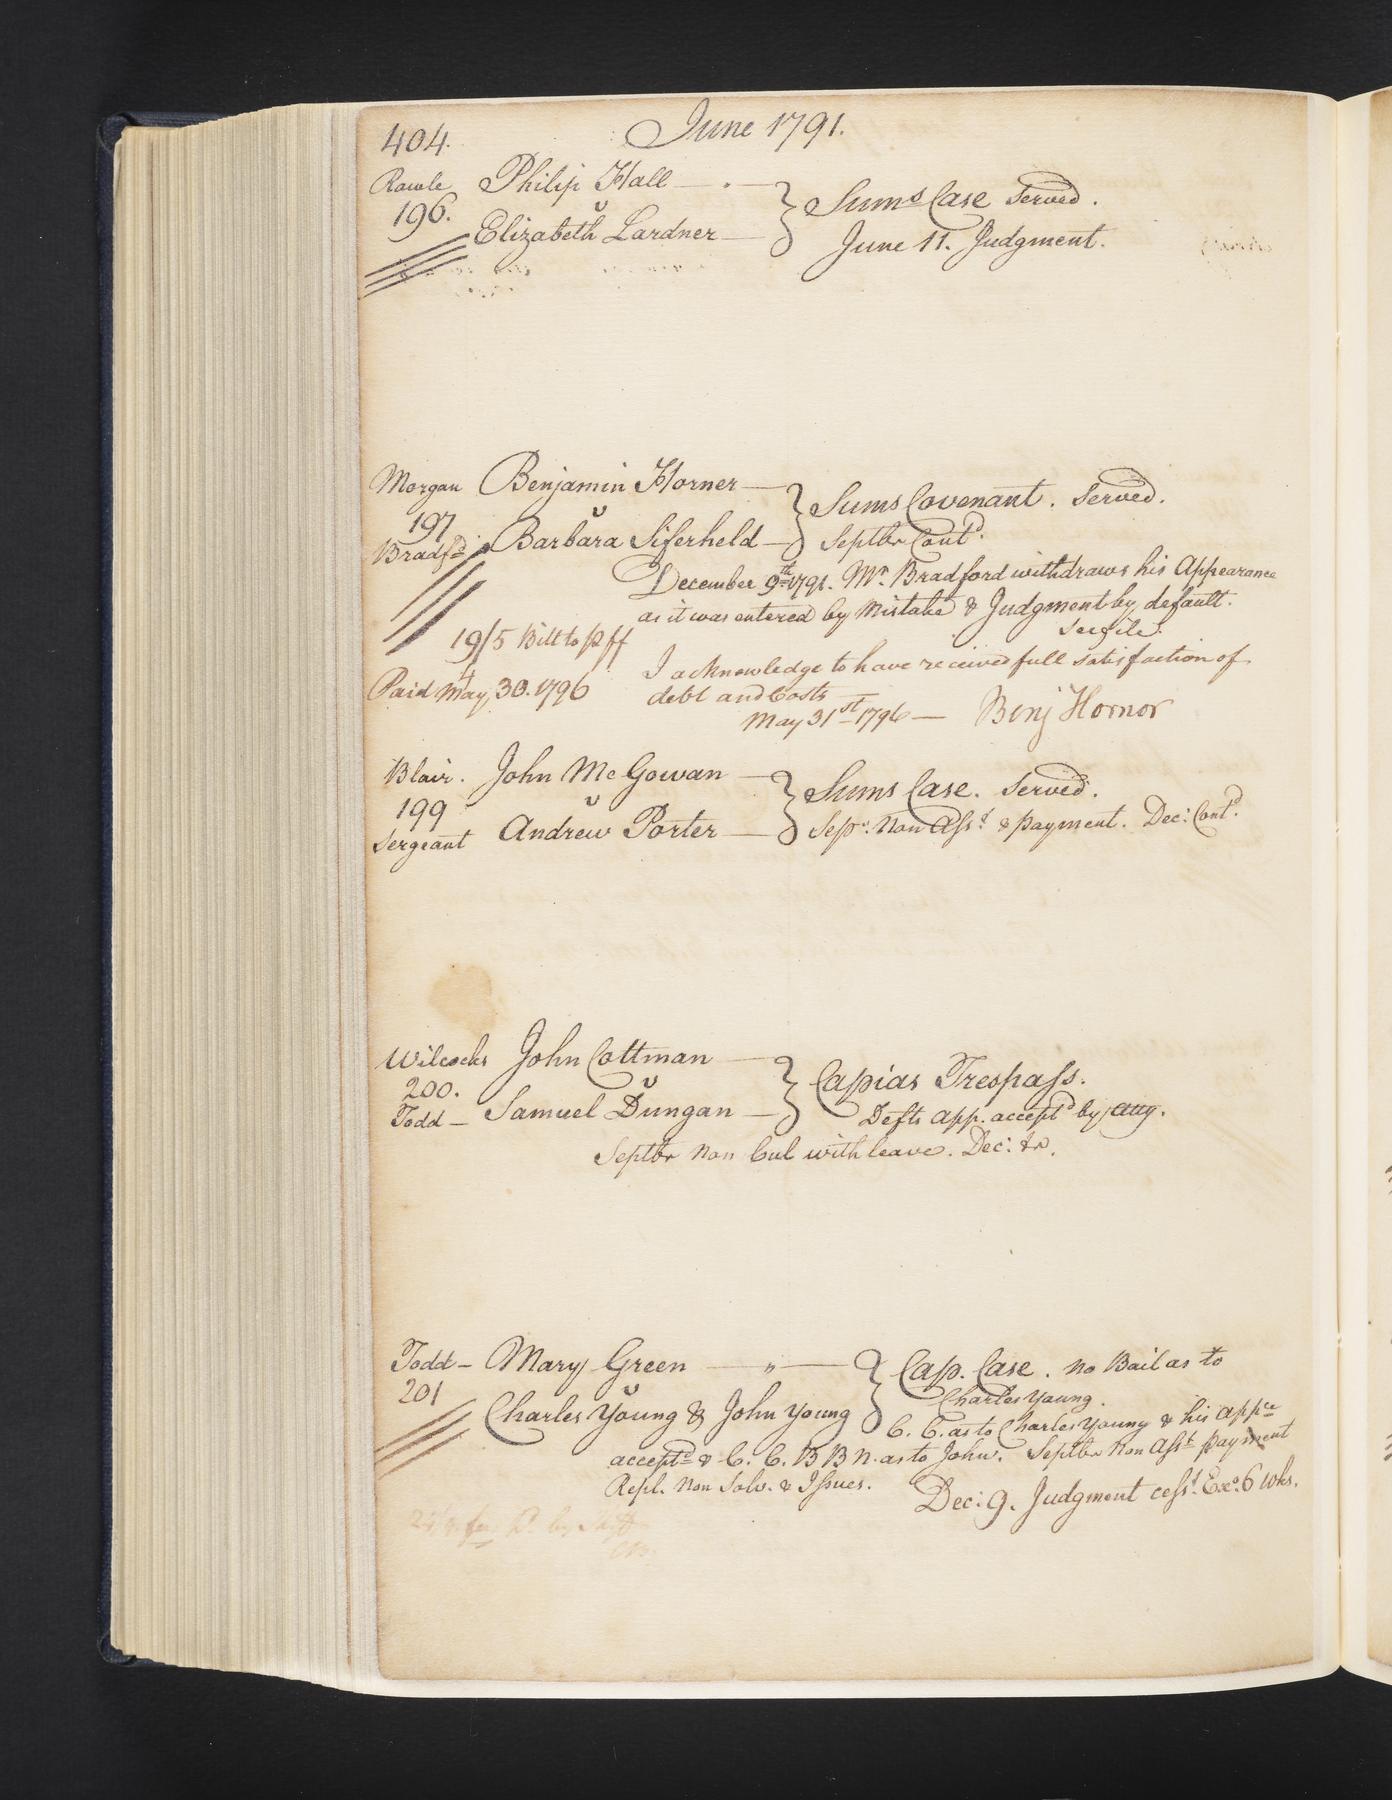 404. June 1791.
Rawle Philip Hall — " — } Sums Case served.
196. v
Elizabeth Lardner — June 11. Judgment.
Morgan Benjamin Horner — } Sums Covenant. Served.
197 v
Bradfd. Barbara Siferheld — Septbr Contd.
December 9th 1791. Mr. Bradford withdraws his Appearance
as it was entered by Mistake & Judgment by default.
See file.
19/5 Bill to pff
4
Paid May, 30. 1796
I acknowledge to have received full satisfaction of
debt and Costs
May 31st 1796 — Benj Hornor
Blair. John McGowan — } Sums Case. Served.
199 v
Sergeant Andrew Porter — Sepr. Non Asst. & payment. Dec: Contd.
Wilcocks John Cottman — } Capias Trespass.
200. v
Todd — Samuel Dungan — Defts app. acceptd by atty.
Septbr Non Cul with leave. Dec: &c.
Todd — Mary Green — " — } Cap. Case. No Bail as to
Charles Young.
201 v
Charles Young & John Young C. C. as to Charles Young & his appce
acceptd & C. C. B B N. as to John. Septbr Non Asst payment
Repl. Non Solv. & Issues. Dec: 9. Judgment cesst. Exo. 6 wks.